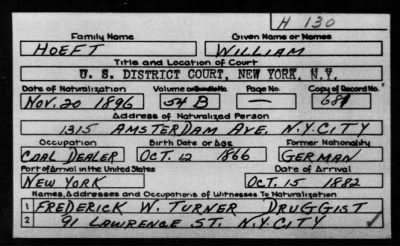 H 130
Family Name Given Name or Names
HOEFT WILLIAM
Title and Location of Court
U. S. DISTRICT COURT, NEW YORK, N.Y.
Date of Naturalization Volume or Bundle No. Page No. Copy of Record No.
NOV. 20 1896 54 B — 681
Address of Naturalized Person
1315 AMSTERDAM AVE. N.Y. CITY
Occupation Birth Date or Age Former Nationality
COAL DEALER OCT. 12 1866 GERMAN
Port of Arrival in the United States Date of Arrival
NEW YORK OCT. 15 1882
Names, Addresses and Occupations of Witnesses To Naturalization
1 FREDERICK W. TURNER DRUGGIST
2 91 LAWRENCE ST. N.Y. CITY